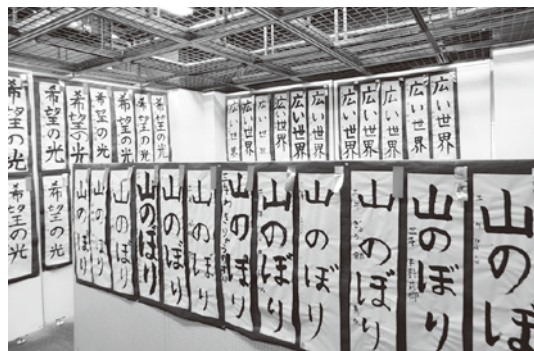 希望の光
希望の光
希望の光
希望の光
希望の光
希望の光
希望の光
広い世界
広い世界
広い世界
広い世界
広い世界
広い世界
広い世界
広い世界
広い世界
広い世界
広い世界
希望の光
希望の光
山のぼり
山のぼり
山のぼり
山のぼり
山のぼり
山のぼり
山のぼり
山のぼり
山のぼり
山のぼり
山のぼり
山のぼ